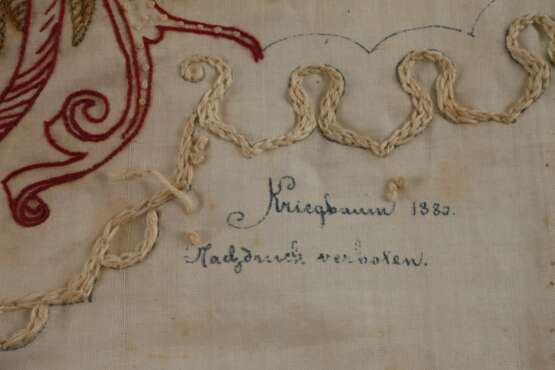 Kriegbaum 1883.
Nachdruck verboten.